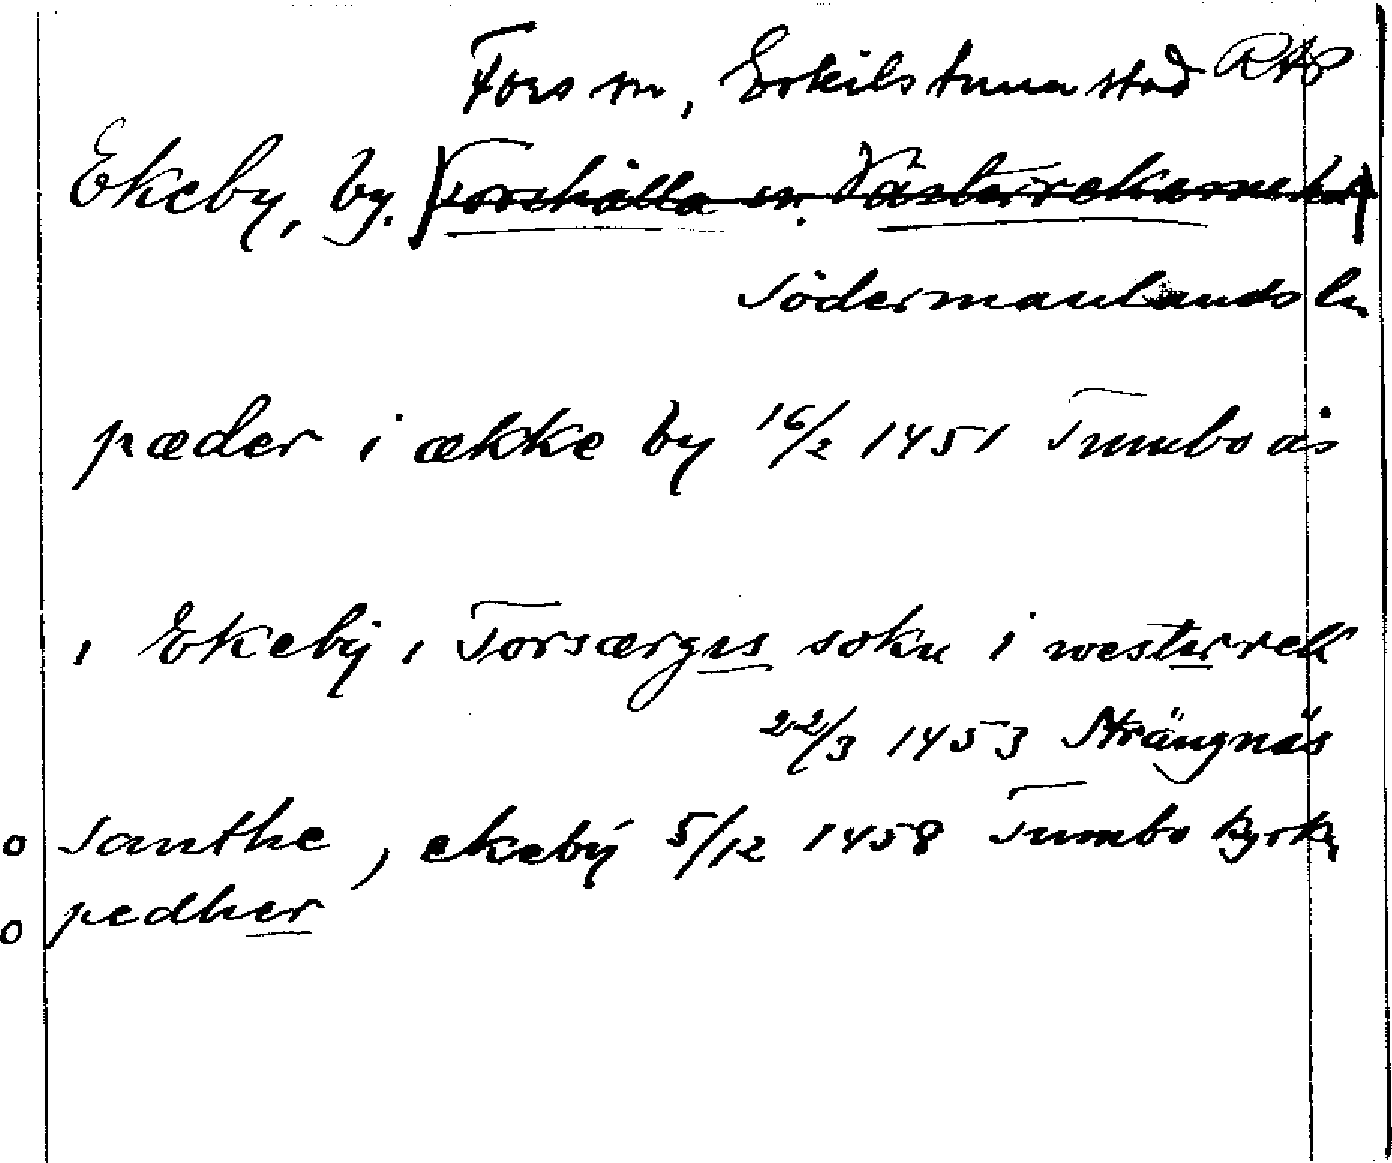 Fors sn, Eskilstuna stad RAP
Ekeby, by. (Torshälla sn. Västerrekarne hd)
Södermanlands ln
pæder i ække by 16/2 1451 Tumbo ås
i Ekebÿ i Torsærgis sokn i westerrek
22/3 1453 Strängnäs
o Santhe , ekebÿ 5/12 1458 Tumbo kyrk
o pedher